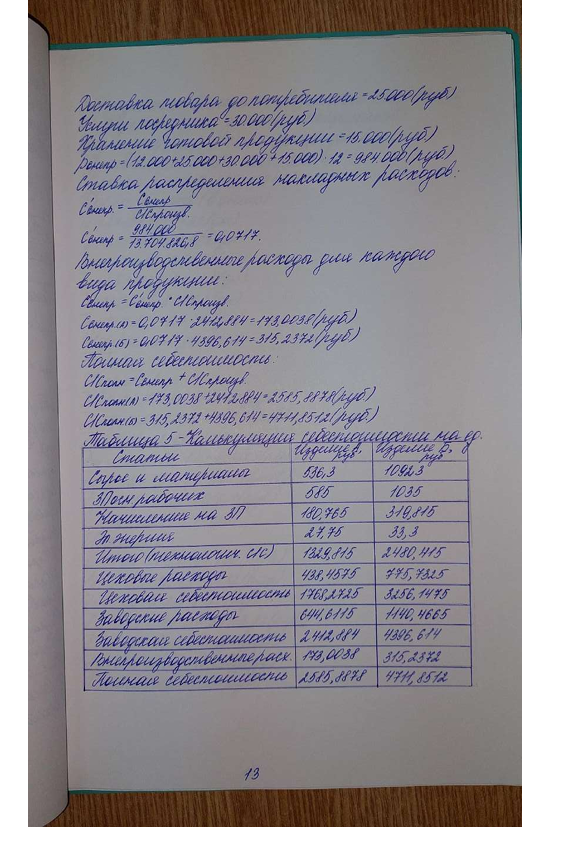 Доставка товара до потребителя = 25000 (руб)
Услуги посредника = 30000 (руб)
Хранение готовой продукции = 15.000 (руб)
Рвнепр = (12.000+25000+30000+15.000) · 12 = 984 000 (руб)
Ставка распределения накладных расходов:
С'внепр. = Свнепр / С/С произв.
С'внепр = 984.000 / 13.704.820,8 = 0,0717.
Внепроизводственные расходы для каждого
вида продукции:
Свнепр = С'внепр. · С/С произв.
Свнепр(А) = 0,0717 · 2412,884 = 173,0038 (руб)
Свнепр(Б) = 0,0717 · 4396,614 = 315,2372 (руб)
Полная себестоимость:
С/С полн = Свнепр + С/С произв.
С/С полн(А) = 173,0038 + 2412,884 = 2585,8878 (руб)
С/С полн(Б) = 315,2372 + 4396,614 = 4711,8512 (руб)
Таблица 5 - Калькуляция себестоимости на ед.
Статьи Изделие А, руб Изделие Б, руб
Сырье и материалы 536,3 1092,3
ЗП осн. рабочих 585 1035
Начисление на ЗП 180,765 319,815
Эл. энергия 27,75 33,3
Итого (технологич. С/С) 1329,815 2480,415
Цеховые расходы 438,4575 775,7325
Цеховая себестоимость 1768,2725 3256,1475
Заводские расходы 644,6115 1140,4665
Заводская себестоимость 2412,884 4396,614
Внепроизводственные расх. 173,0038 315,2372
Полная себестоимость 2585,8878 4711,8512
13